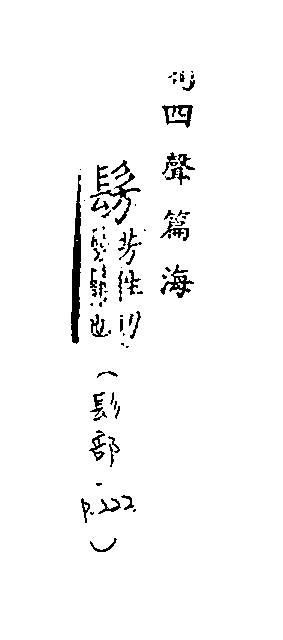 四聲篇海
髣
芳往切
髣髴也
(髟部.p.222.)